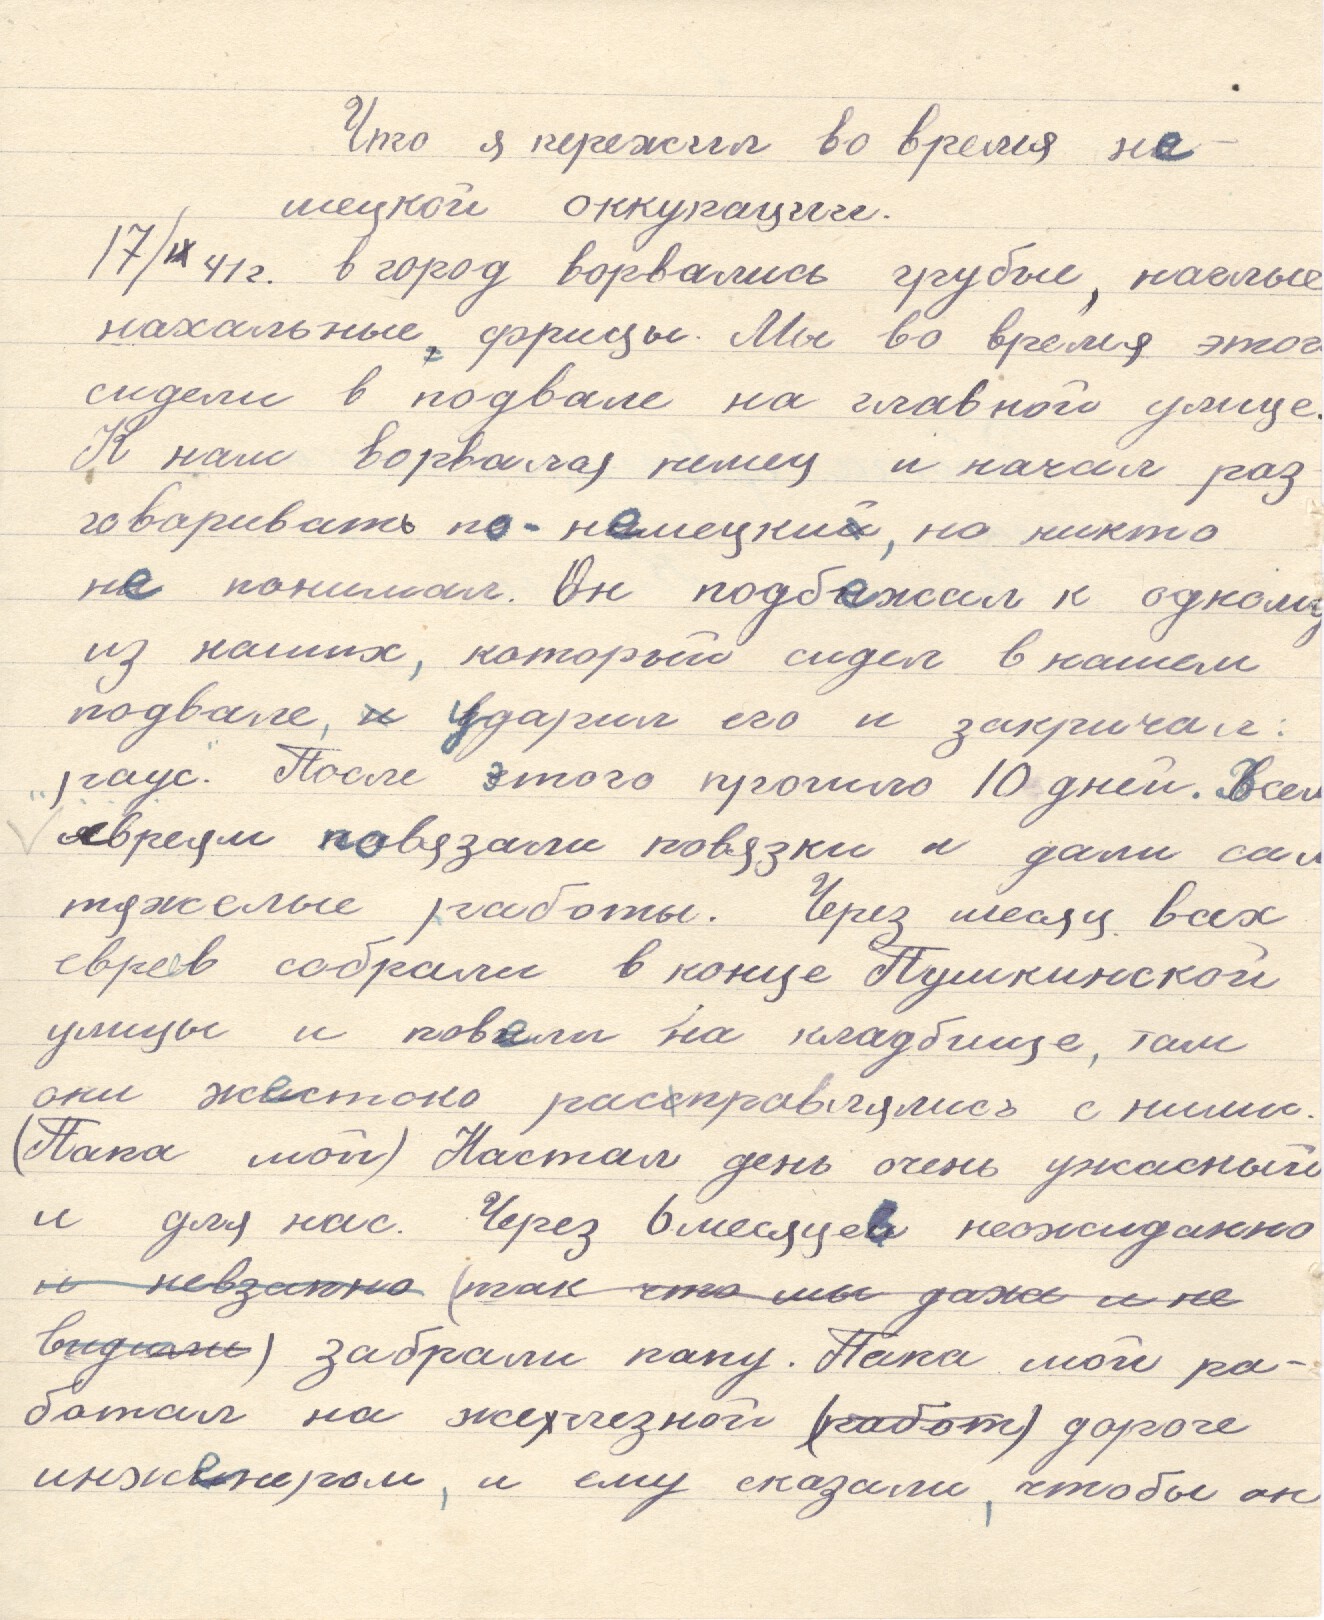 Что я пережил во время не-
мецкой оккупации.
17/IX 41г. в город ворвались грубые, наглые
нахальные, фрицы. Мы во время этог
сидели в подвале на главной улице.
К нам ворвался немец и начал раз-
говаривать по-немецкий, но никто
не понимал. Он подбежал к одному
из наших, который сидел в нашем
подвале, и ударил его и закричал:
„раус." После этого прошло 10 дней. Всем
евреям повязали повязки и дали сам
тяжелые работы. Через месяц всех
евреев собрали в конце Пушкинской
улицы и повели на кладбище, там
они жестоко расправлялись с ними.
(Папа мой) Настал день очень ужасный
и для нас. Через 6 месяцев неожиданно
и невзапно (так что мы даже и не
видили) забрали папу. Папа мой ра-
ботал на железной (работ) дороге
инженером, и ему сказали, чтобы он